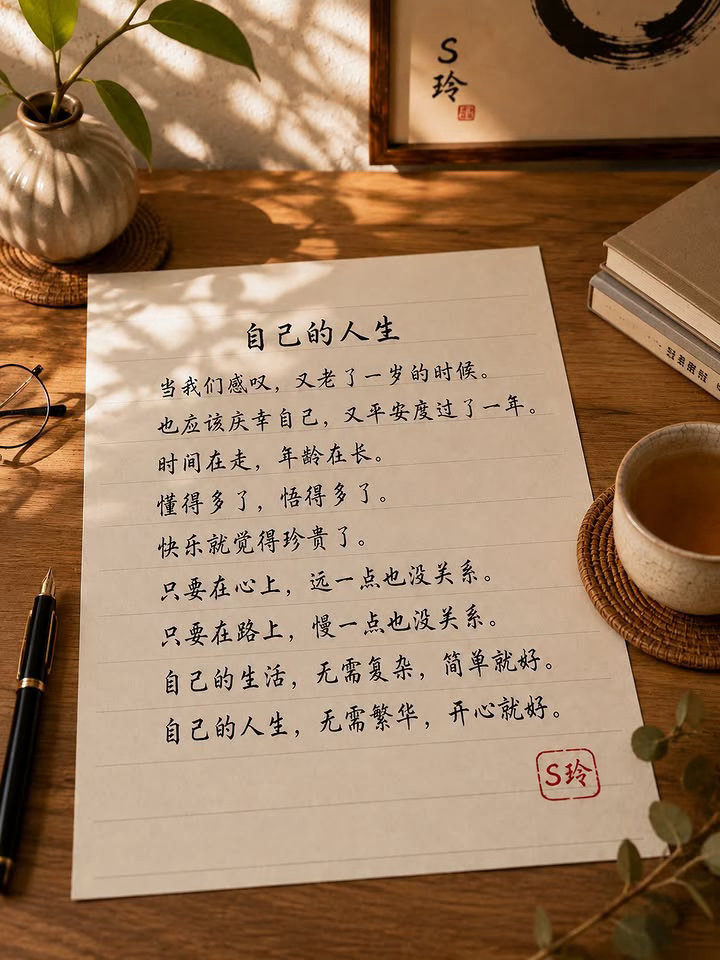 S
玲
自己的人生
当我们感叹，又老了一岁的时候。
也应该庆幸自己，又平安度过了一年。
时间在走，年龄在长。
懂得多了，悟得多了。
快乐就觉得珍贵了。
只要在心上，远一点也没关系。
只要在路上，慢一点也没关系。
自己的生活，无需复杂，简单就好。
自己的人生，无需繁华，开心就好。
S玲